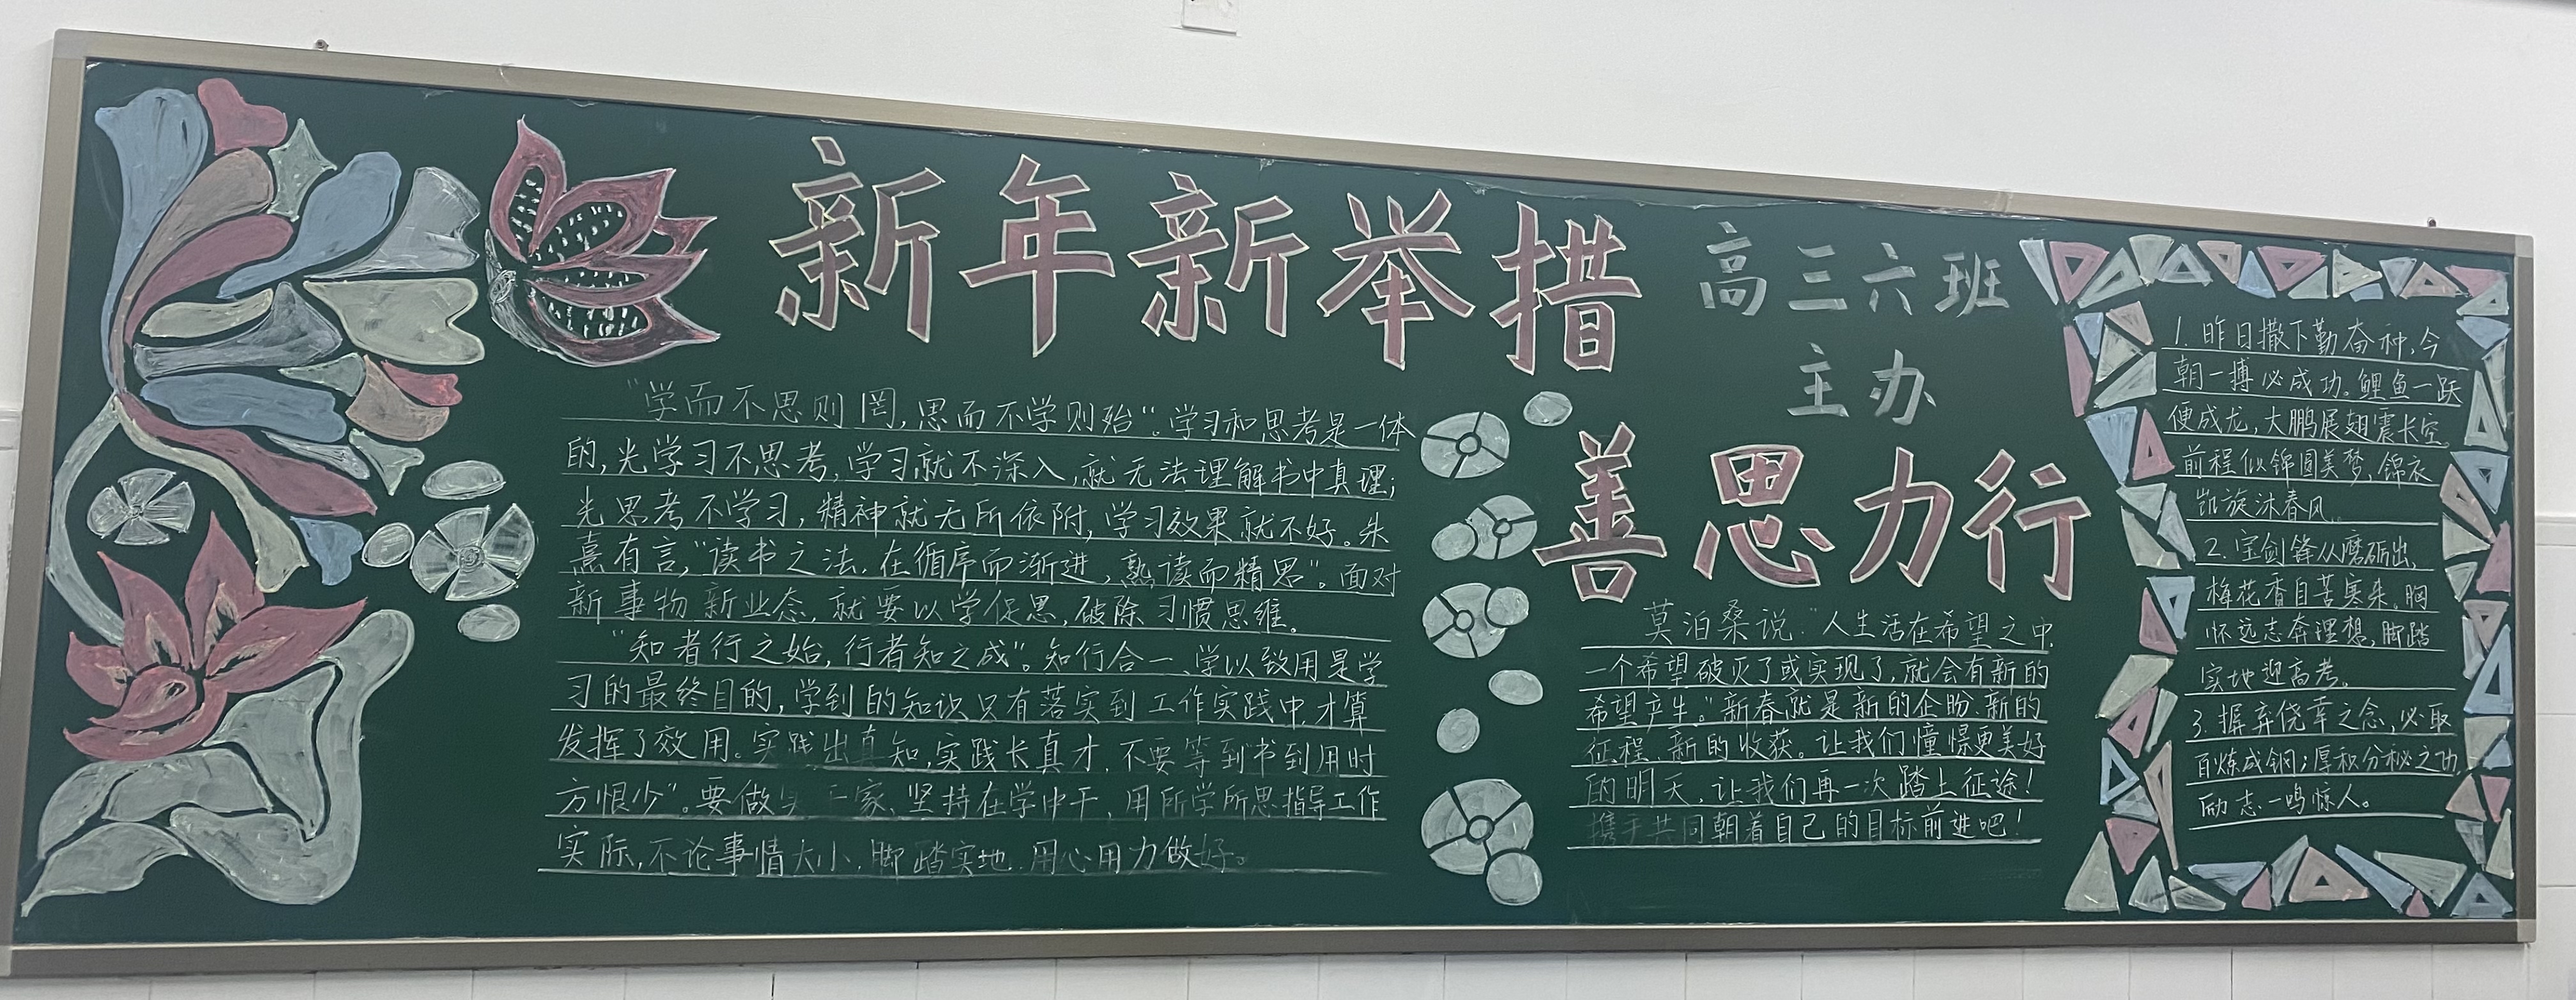 新年新举措
高三六班
主办
善思力行
"学而不思则罔,思而不学则殆"。学习和思考是一体
的,光学习不思考,学习就不深入,就无法理解书中真理;
光思考不学习,精神就无所依附,学习效果就不好。朱
熹有言,"读书之法,在循序而渐进,熟读而精思"。面对
新事物新业态,就要以学促思,破除习惯思维。
"知者行之始,行者知之成"。知行合一、学以致用是学
习的最终目的,学到的知识只有落实到工作实践中,才算
发挥了效用。实践出真知,实践长真才,不要等到"书到用时
方恨少"。要做 家、坚持在学中干,用所学所思指导工作
实际,不论事情大小,脚踏实地,用心用力做好。
莫泊桑说:"人生活在希望之中,
一个希望破灭了或实现了,就会有新的
希望产生。"新春就是新的企盼、新的
征程、新的收获。让我们憧憬更美好
的明天,让我们再一次踏上征途!
携手共同朝着自己的目标前进吧!
1.昨日撒下勤奋种,今
朝一搏必成功。鲤鱼一跃
便成龙,大鹏展翅震长空。
前程似锦圆美梦,锦衣
凯旋沐春风。
2.宝剑锋从磨砺出,
梅花香自苦寒来。胸
怀远志奔理想,脚踏
实地迎高考。
3.摒弃侥幸之念,必取
百炼成钢;厚积分秒之功,
励志一鸣惊人。